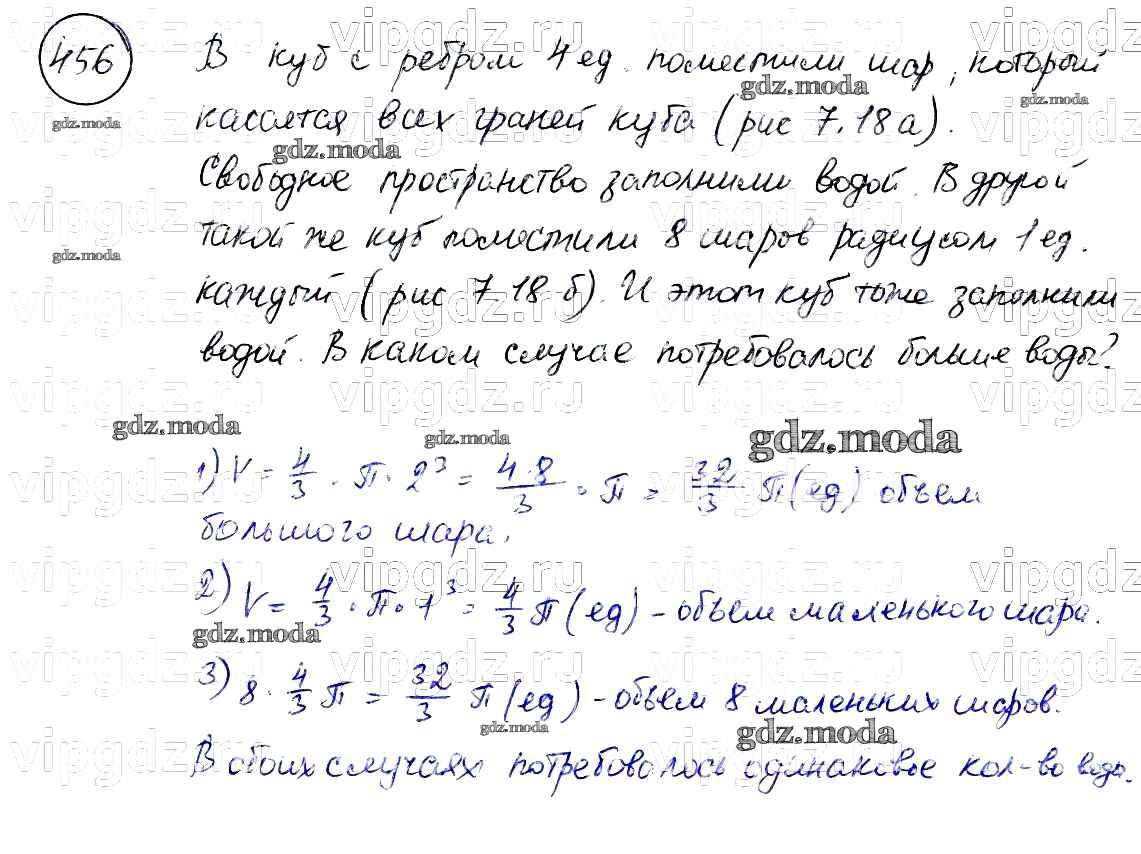 456 В куб с ребром 4 ед. поместили шар, который
касается всех граней куба (рис 7.18 а).
Свободное пространство заполнили водой. В другой
такой же куб поместили 8 шаров радиусом 1 ед.
каждый (рис 7.18 б). И этот куб тоже заполнили
водой. В каком случае потребовалось больше воды?
1) V = 4/3 · П · 2³ = 4·8/3 · П = 32/3 П (ед) объем
большого шара.
2) V = 4/3 · П · 1³ = 4/3 П (ед) - объем маленького шара.
3) 8 · 4/3 П = 32/3 П (ед) - объем 8 маленьких шаров.
В обоих случаях потребовалось одинаковое кол-во воды.
gdz.moda
vipgdz.ru